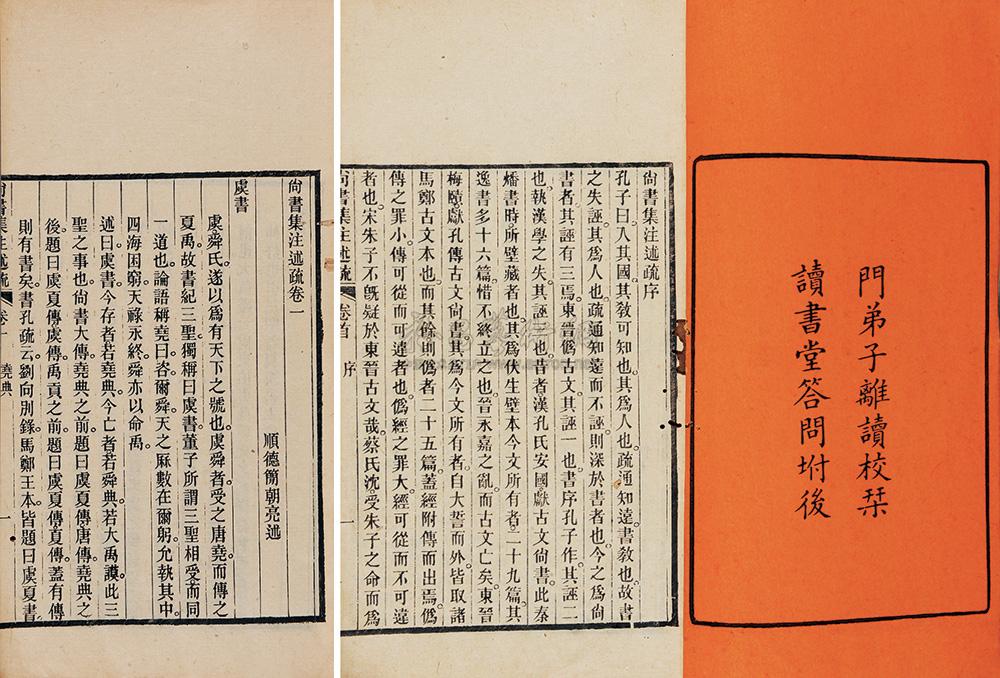 門弟子離讀校栞
讀書堂答問坿後
尙書集注述疏序
孔子曰入其國其敎可知也其爲人也疏通知遠書敎也故書
之失誣其爲人也疏通知遠而不誣則深於書者也今之爲尙
書者其誣有三焉東晉僞古文其誣一也書序孔子作其誣二
也執漢學之失其誣三也昔者漢孔氏安國獻古文尙書此秦
燔書時所壁藏者也其爲伏生壁本今文所有者二十九篇其
逸書多十六篇惜不終立之也晉永嘉之亂而古文亡矣東晉
梅賾獻孔傳古文尙書其爲今文所有者自大誓而外皆取諸
馬鄭古文本也而其餘則僞者二十五篇蓋經附傳而出焉僞
傳之罪小傳可從而可違者也僞經之罪大經可從而不可違
者也宋朱子不旣疑於東晉古文哉蔡氏沈受朱子之命而爲
尙書集注述疏 卷首 序 一
尙書集注述疏卷一
順德簡朝亮述
虞書
虞舜氏遂以爲有天下之號也虞舜者受之唐堯而傳之
夏禹故書紀三聖獨稱曰虞書董子所謂三聖相受而同
一道也論語稱堯曰咨爾舜天之厤數在爾躬允執其中
四海困窮天祿永終舜亦以命禹
述曰虞書今存者若堯典今亡者若舜典若大禹謨此三
聖之事也尙書大傳堯典之前題曰虞夏傳唐傳堯典之
後題曰虞夏傳虞傳禹貢之前題曰虞夏傳夏傳蓋有傳
則有書矣書孔疏云劉向別錄馬鄭王本皆題曰虞夏書
尙書集注述疏 卷一 堯典 一